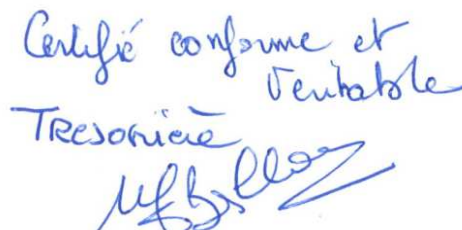 Certifié conforme et
Veritable
Tresorière